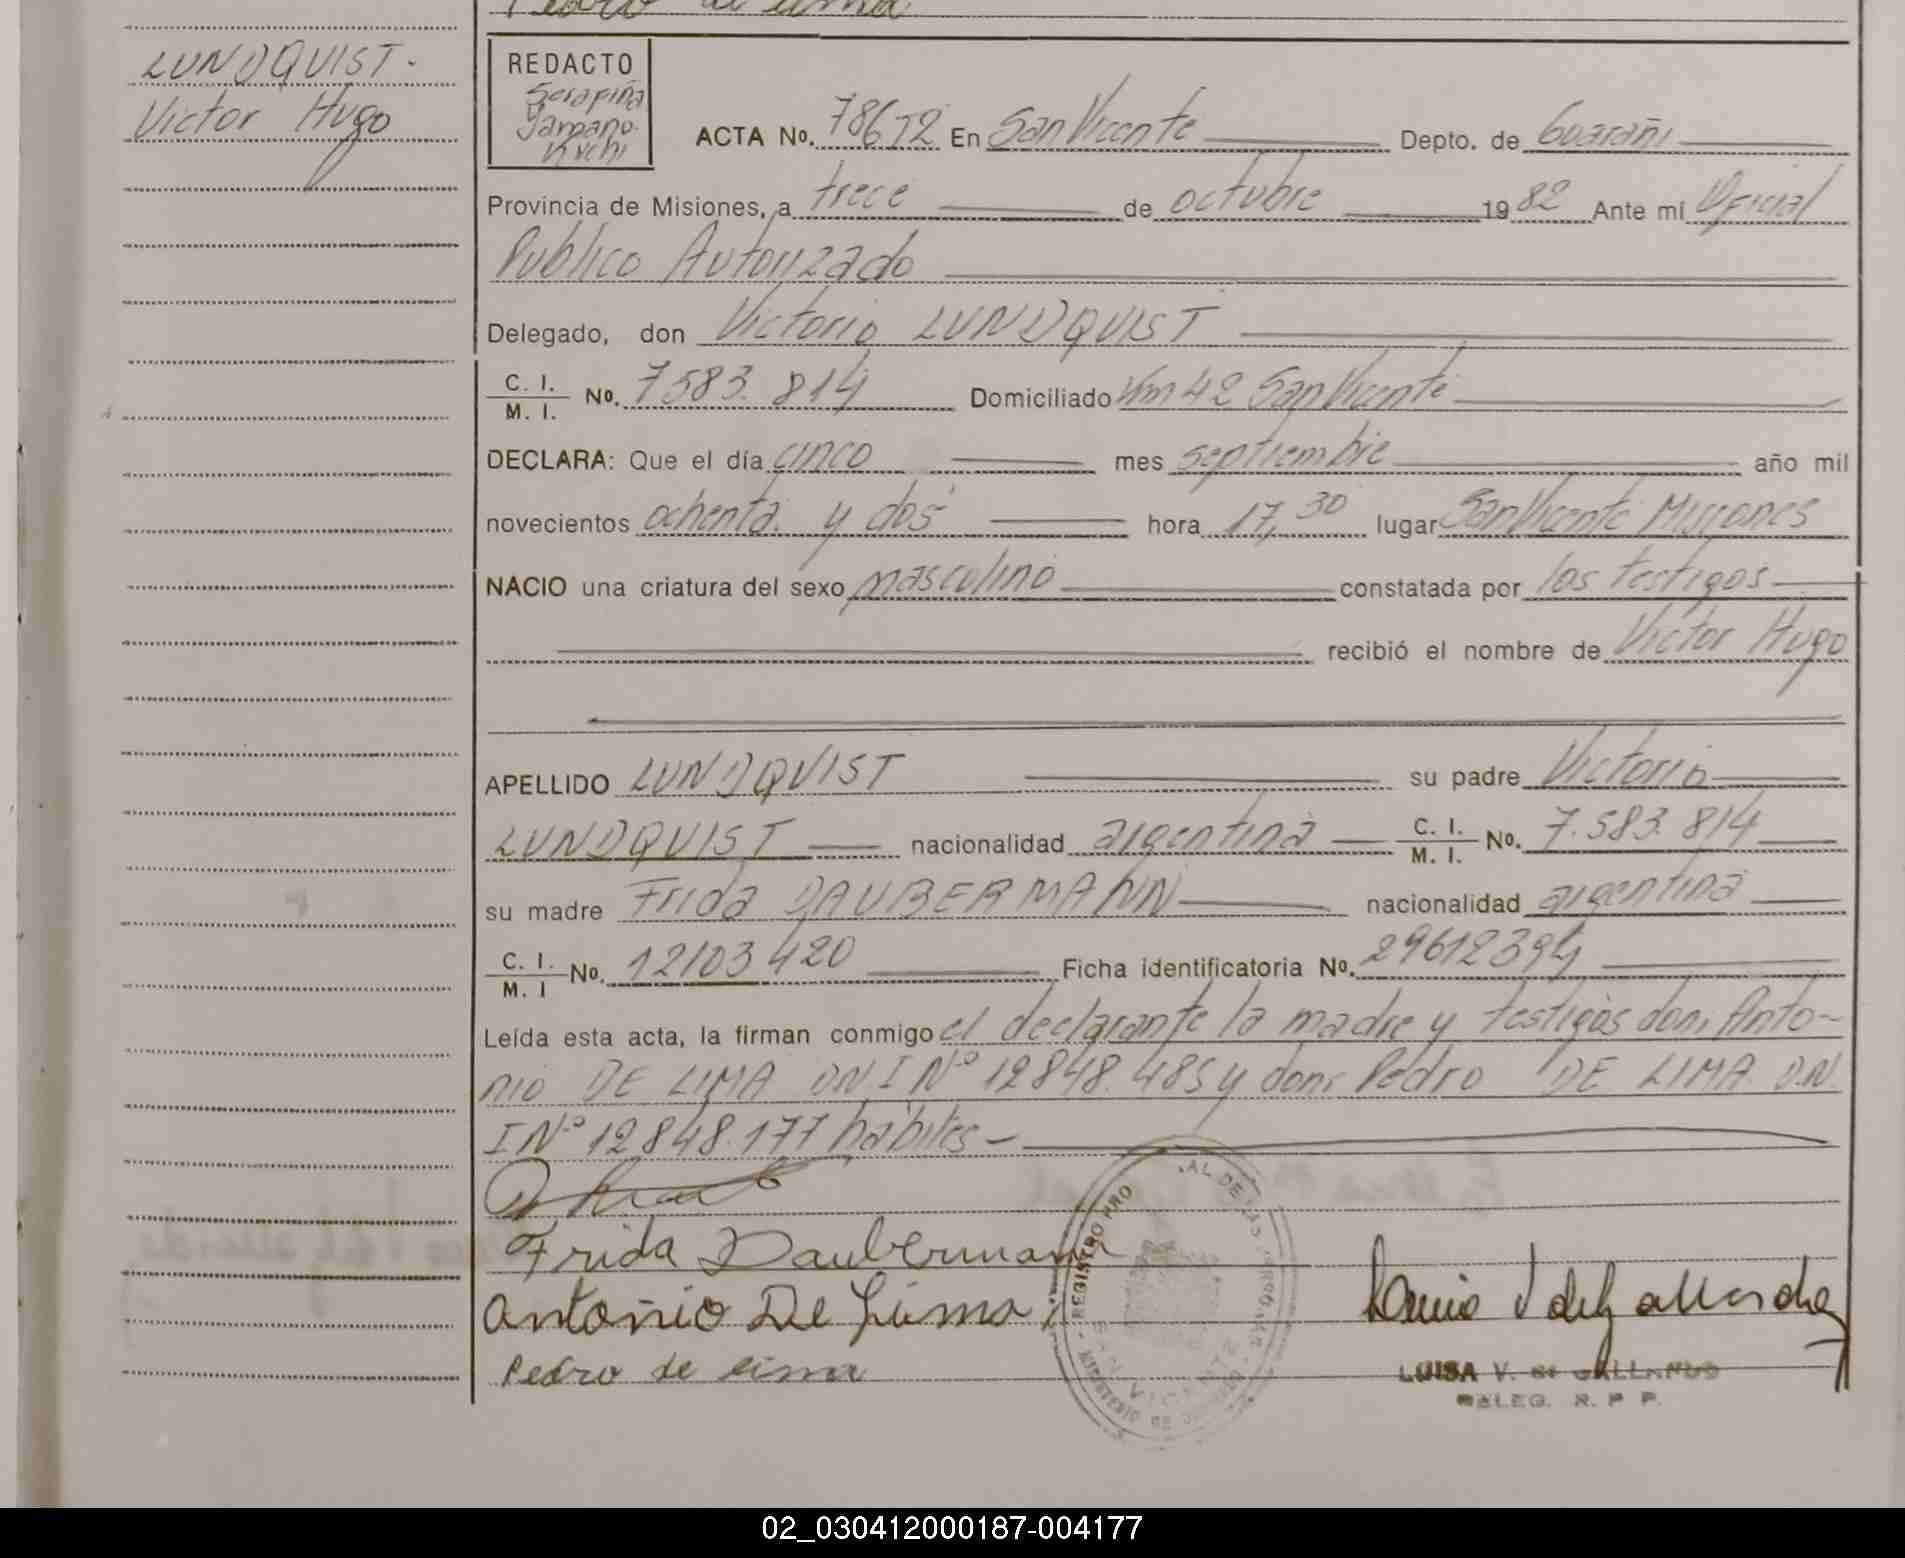 Pedro de Lima
LUNDQUIST.
Victor Hugo
REDACTO
Serafina
ACTA No. 78672 En San Vicente Depto. de Guaraní
Provincia de Misiones, a trece de octubre 1982 Ante mí Oficial
Publico Autorizado
Delegado, don Victorio LUNDQUIST
C. I. / M. I. No. 7583.814 Domiciliado Km 42 San Vicente
DECLARA: Que el día cinco mes septiembre año mil
novecientos ochenta y dos hora 17,30 lugar San Vicente Misiones
NACIO una criatura del sexo masculino constatada por los testigos
recibió el nombre de Victor Hugo
APELLIDO LUNDQUIST su padre Victorio
LUNDQUIST nacionalidad argentina C. I. / M. I. No. 7.583.814
su madre Frida DAUBERMANN nacionalidad argentina
C. I. / M. I No. 12103420 Ficha identificatoria No. 29612394
Leída esta acta, la firman conmigo el declarante la madre y testigos don, Anto-
nio DE LIMA DNI Nº 12848.485 y don: Pedro DE LIMA D.N.
I Nº 12848.177 hábiles-
Frida Daubermann
Antonio De Lima
Pedro de Lima
REGISTRO PRO AL DE LAS PERSONAS
SAN VICENTE
LUISA V. de GALLARDO
DELEG. R. P. P.
02_030412000187-004177